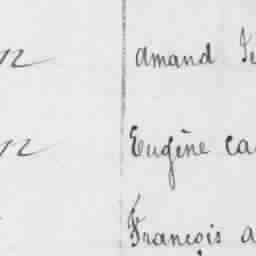 n amand
n Eugène ca
François a